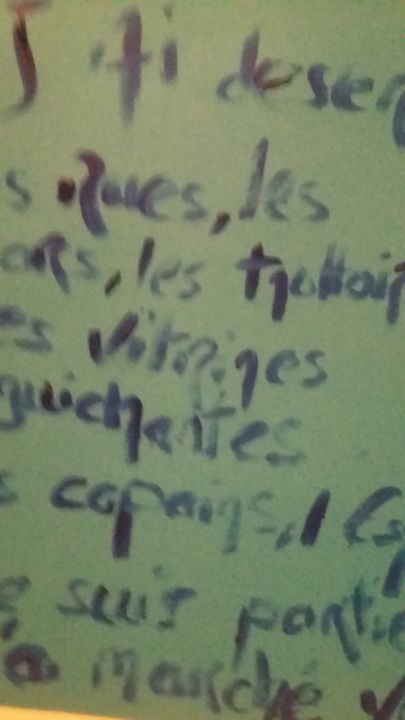 J'ai deser
s rues, les
ars, les trottoir
es vitrines
guichantes
s copains, l'es
e suis partie
a marché v